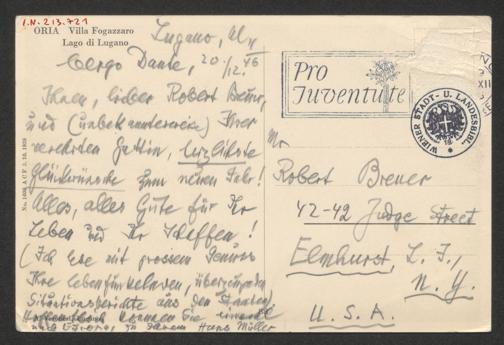 I.N. 213.721
ORIA Villa Fogazzaro
Lago di Lugano
Lugano,
Albergo Dante, 20/12. 46
Ihnen, lieber Robert Breuer,
und (unbekannterweise) Ihrer
verehrten Gattin, herzlichste
Glückwünsche zum neuen Jahr!
Alles, alles Gute für Ihr
Leben und Ihr Schaffen!
(Ich lese mit grossem Genuss
Ihre lebenfunkelnden, überzeugenden
Situationsberichte aus den Staaten)
Hoffentlich kommen Sie einmal
nach Europa, zu Ihrem Hans Müller
Pro
Juventute
XII
WIENER STADT- U. LANDESBIBL.
Mr
Robert Breuer
42-42 Judge Street
Elmhurst, L. I.,
N. Y.
U. S. A.